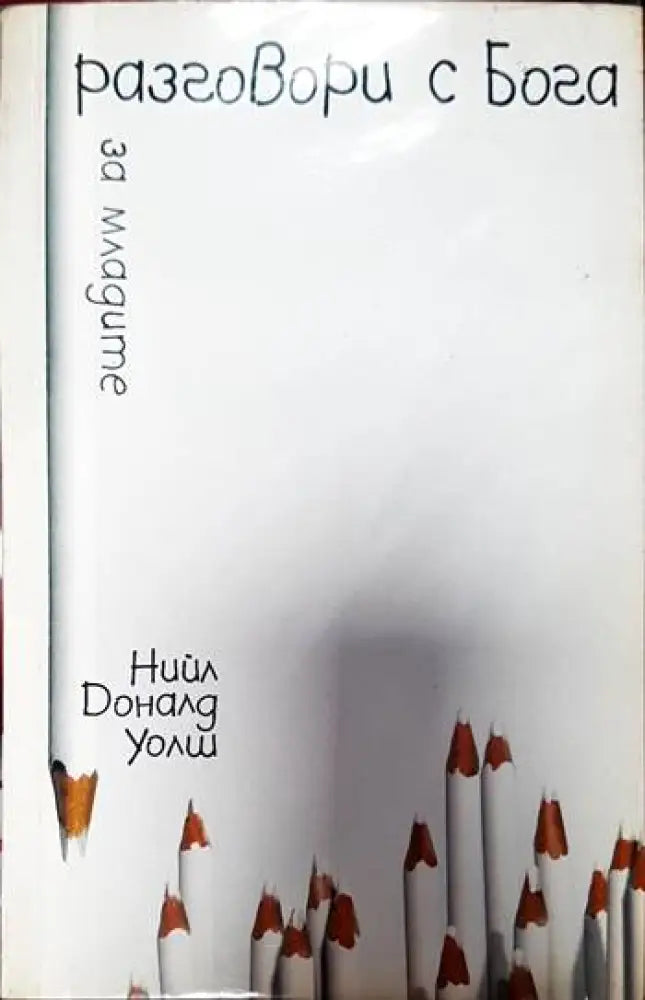 разговори с Бога
за младите
Нийл
Доналд
Уолш